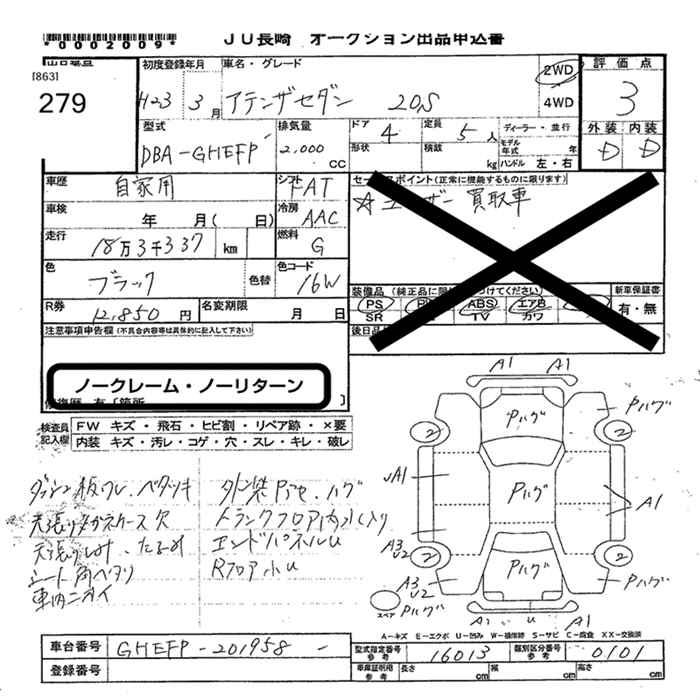 *0002009*
JU長崎 オークション出品申込書
[863]
279
初度登録年月 車名・グレード 2WD 評価点
H23 3月 アテンザセダン 20S 4WD 3
型式 排気量 ドア 4 定員 5人 ディーラー・並行 外装 内装
DBA-GHEFP 2,000 CC 形状 積載 kg モデル年式 年 ハンドル 左・右 D D
車歴 自家用 シフト FAT セールスポイント(正常に機能するものに限ります)
車検 年 月(日) 冷房 AAC ☆ユーザー買取車
走行 18万3千337 km 燃料 G
色 ブラック 色替 色コード 16W 装備品 新車保証書
PS ABS エアB 有・無
SR TV カワ
R券 12,850円 名変期限 月 日 後日品
注意事項申告欄(不具合内容等は具体的に記入して下さい)
ノークレーム・ノーリターン
修復歴 有〔箇所 〕
検査員記入欄 FW キズ・飛石・ヒビ割・リペア跡・×要
内装 キズ・汚レ・コゲ・穴・スレ・キレ・破レ
ダッシュ板ワレ、ベタツキ 外装Pアセ・ハグ
天張りメガネケース欠 トランクフロア内水入り
天張りしみ、たるみ エンドパネルU
シート角ヘタリ Rフロア小U
車内ニオイ
A1 A1
Pハグ Pハグ
2 2
A1 Pハグ A1
A3 U2 2 2
Pハグ
A3 U2 Pハグ Pハグ
スペア A1 U A1
A-キズ E-エクボ U-凹み W-補修跡 S-サビ C-腐食 XX-交換済
車台番号 GHEFP-201958 型式指定番号 参考 16013 類別区分番号 参考 0101
登録番号 車庫証明用 参考 長さ cm 幅 cm 高さ cm